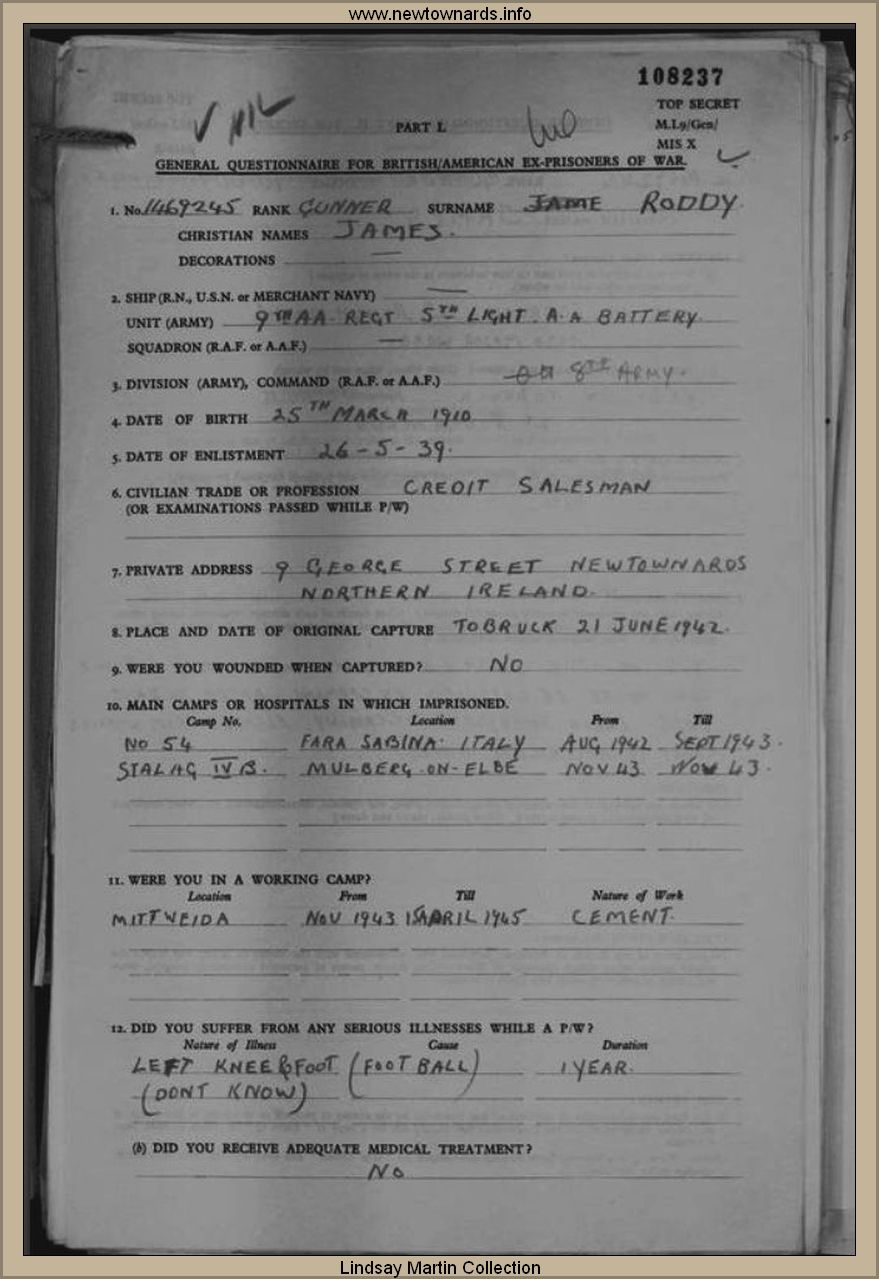 www.newtownards.info
108237
TOP SECRET
PART I.
M.I.9/Gen/
MIS X
GENERAL QUESTIONNAIRE FOR BRITISH/AMERICAN EX-PRISONERS OF WAR.
1. No. 1469245 RANK GUNNER SURNAME JAME RODDY.
CHRISTIAN NAMES JAMES.
DECORATIONS —
2. SHIP (R.N., U.S.N. or MERCHANT NAVY) —
UNIT (ARMY) 9TH AA. REGT 5TH LIGHT. A.A BATTERY
SQUADRON (R.A.F. or A.A.F.) —
3. DIVISION (ARMY), COMMAND (R.A.F. or A.A.F.) 8TH ARMY.
4. DATE OF BIRTH 25TH MARCH 1910
5. DATE OF ENLISTMENT 26-5-39.
6. CIVILIAN TRADE OR PROFESSION CREDIT SALESMAN
(OR EXAMINATIONS PASSED WHILE P/W)
7. PRIVATE ADDRESS 9 GEORGE STREET NEWTOWNARDS
NORTHERN IRELAND.
8. PLACE AND DATE OF ORIGINAL CAPTURE TOBRUCK 21 JUNE 1942.
9. WERE YOU WOUNDED WHEN CAPTURED? NO
10. MAIN CAMPS OR HOSPITALS IN WHICH IMPRISONED.
Camp No. Location From Till
NO 54 FARA SABINA. ITALY AUG 1942 SEPT 1943.
STALAG IV B. MULBERG-ON-ELBE NOV 43 NOV 43.
11. WERE YOU IN A WORKING CAMP?
Location From Till Nature of Work
MITTWEIDA NOV 1943 15 APRIL 1945 CEMENT.
12. DID YOU SUFFER FROM ANY SERIOUS ILLNESSES WHILE A P/W?
Nature of Illness Cause Duration
LEFT KNEE & FOOT (FOOTBALL) 1 YEAR.
(DONT KNOW)
(b) DID YOU RECEIVE ADEQUATE MEDICAL TREATMENT?
NO
Lindsay Martin Collection